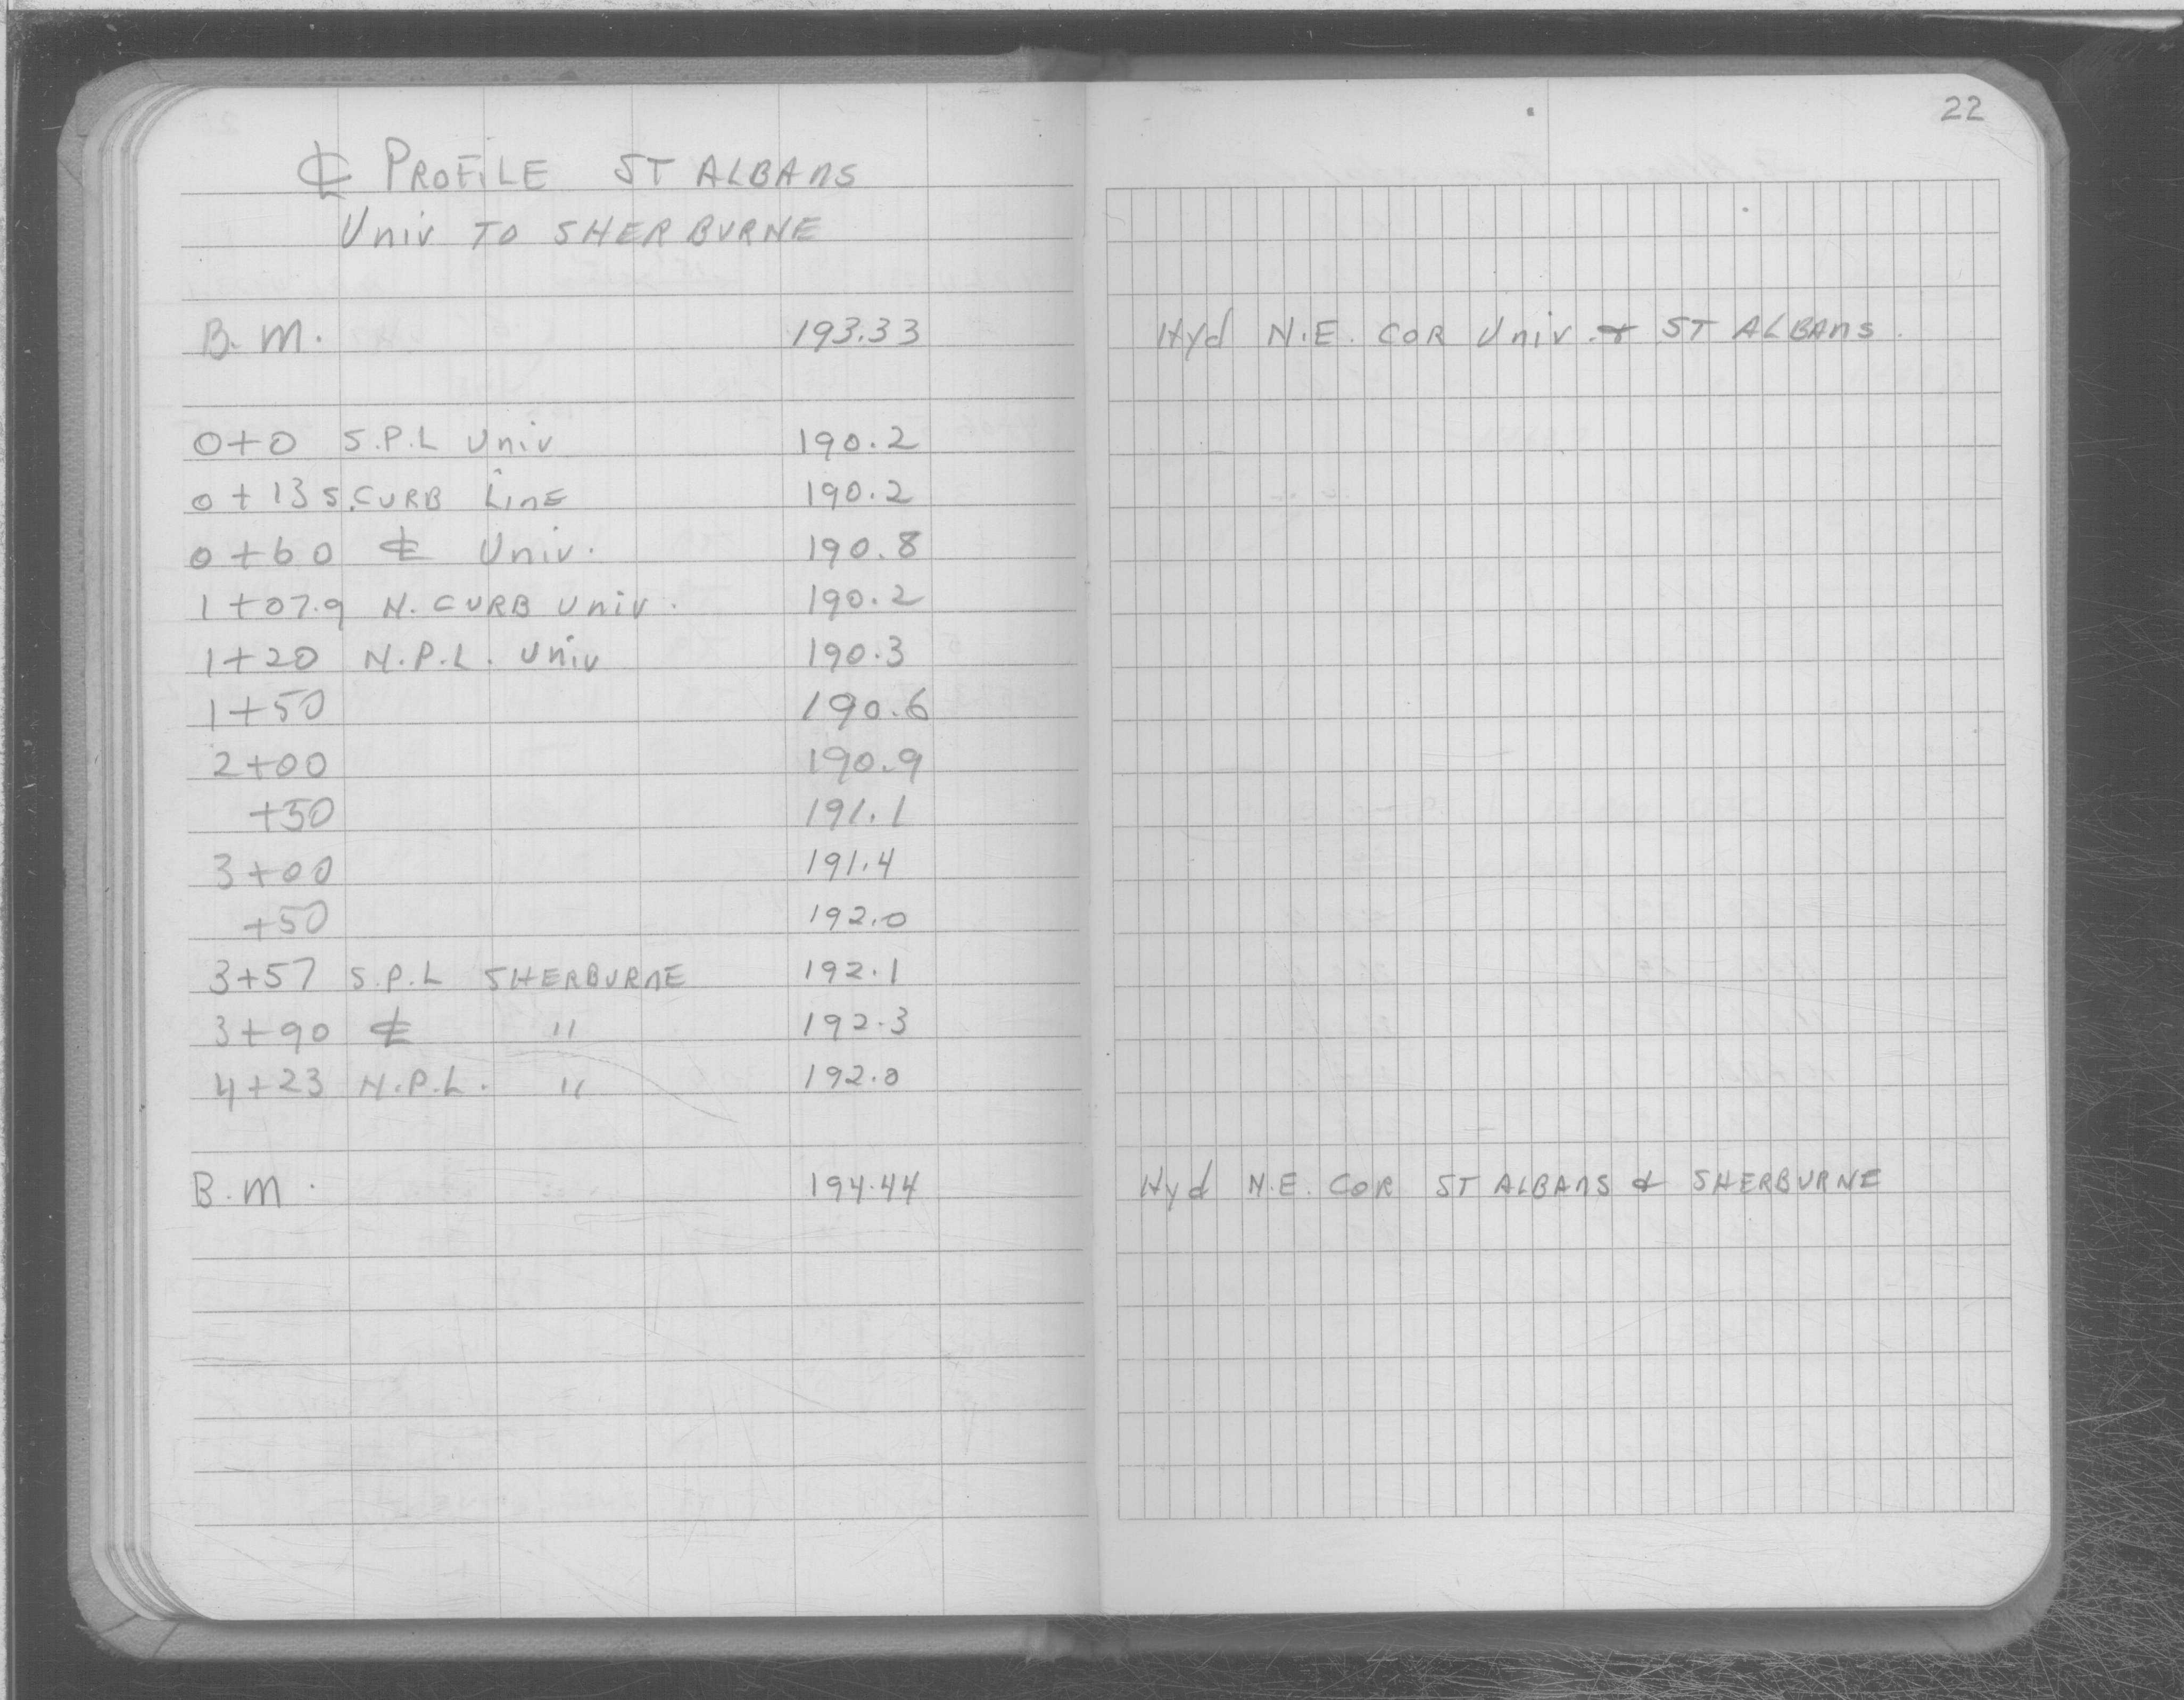 22
℄ PROFILE ST ALBANS
Univ TO SHERBURNE
B.M. 193.33 Hyd N.E. COR Univ. & ST ALBANS.
0+0 S.P.L Univ 190.2
0+13 S. CURB LINE 190.2
0+60 ℄ Univ. 190.8
1+07.9 N. CURB Univ. 190.2
1+20 N.P.L. Univ 190.3
1+50 190.6
2+00 190.9
+50 191.1
3+00 191.4
+50 192.0
3+57 S.P.L SHERBURNE 192.1
3+90 ℄ " 192.3
4+23 N.P.L. " 192.0
B.M. 194.44 Hyd N.E. COR ST ALBANS & SHERBURNE